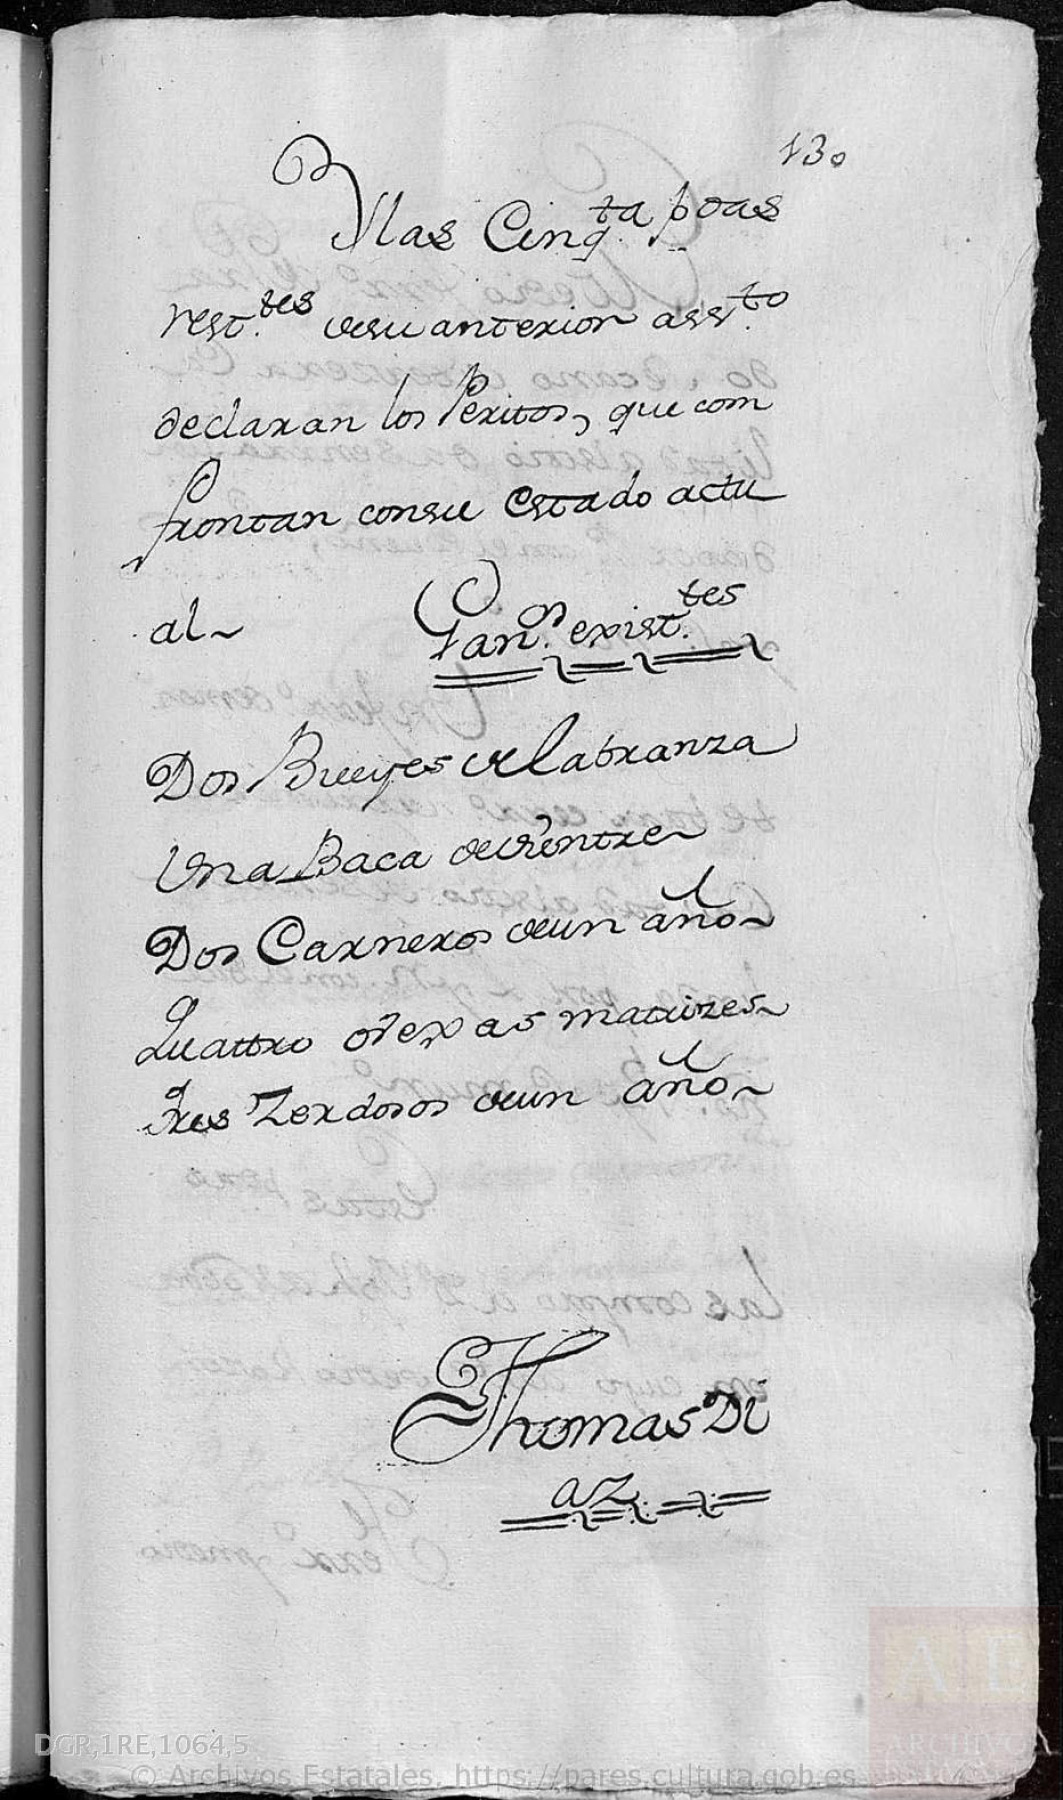 130
Ylas Cinq.ta p.oas
rest.tes desu anterior assi.to
declaran los Peritos, que com
frontan consu estado actu
al~
Gan.os exist.tes
Dos Bueyes de labranza
Una Baca de vientre
Dos Carneros deun año~
Quattro ovexas matrizes~
Tres Zerdosos deun año~
Thomas Di
az
DGR,1RE,1064,5
© Archivos Estatales, https://pares.cultura.gob.es
AE
ARCHIVOS